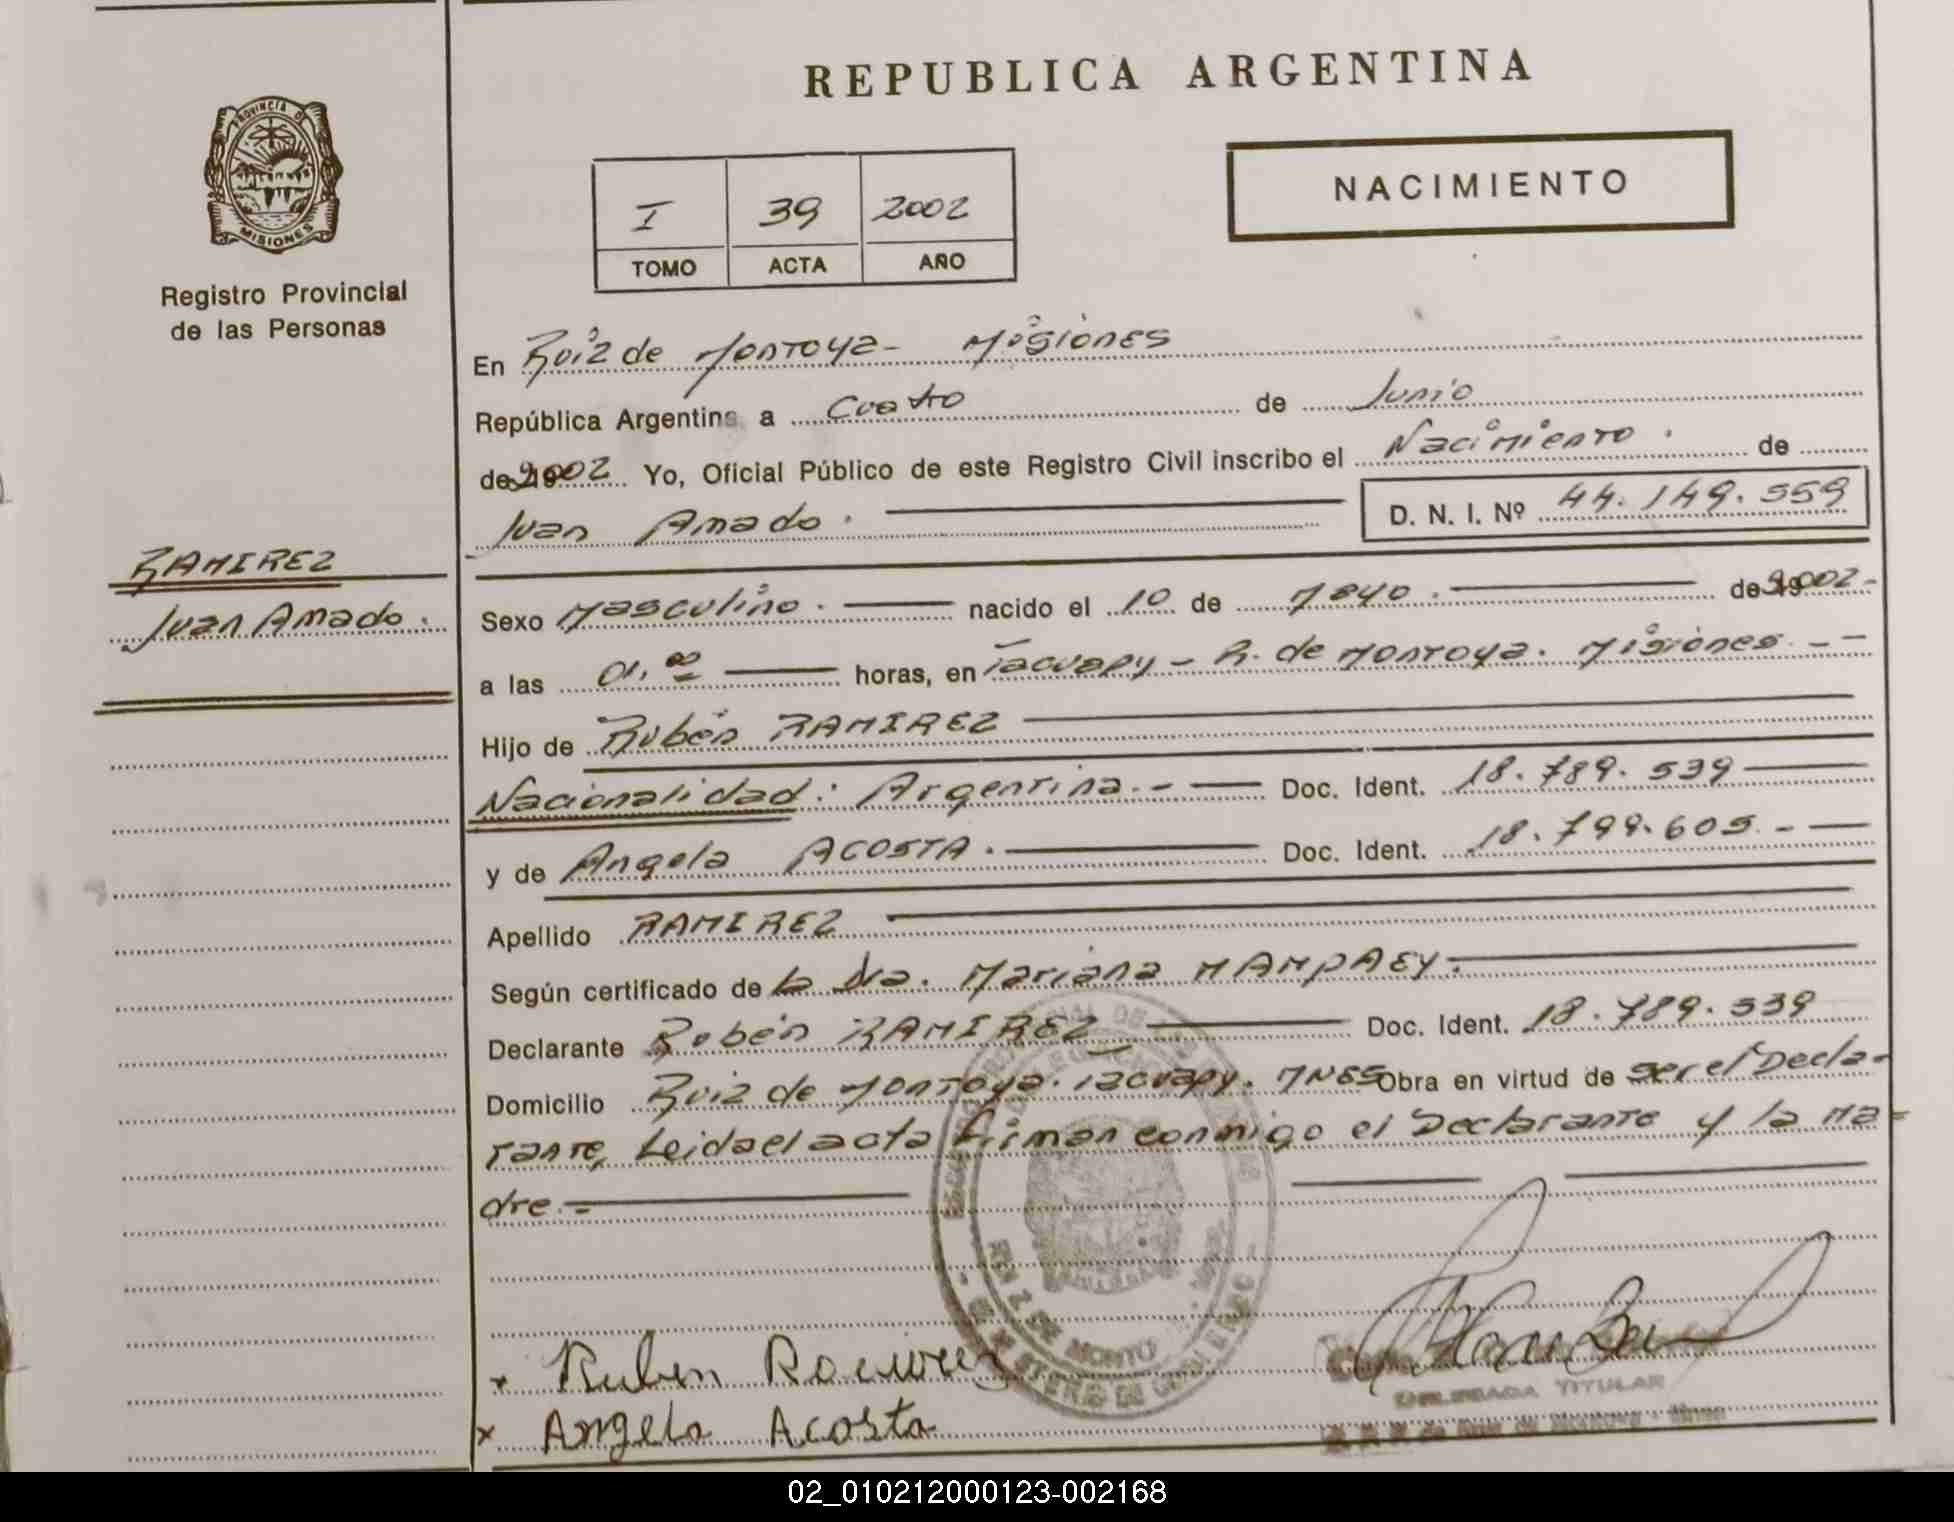 REPUBLICA ARGENTINA
PROVINCIA DE
MISIONES
Registro Provincial
de las Personas
I 39 2002
TOMO ACTA AÑO
NACIMIENTO
En Ruiz de Montoya - Misiones
República Argentina a Cuatro de Junio
de 2002 Yo, Oficial Público de este Registro Civil inscribo el Nacimiento. de
Juan Amado. D. N. I. Nº 44.149.559
RAMIREZ
Juan Amado.
Sexo Masculino. nacido el 10 de Mayo. de 2002-
a las 01,00 horas, en Tacuapy - R. de Montoya. Misiones - -
Hijo de Rubén RAMIREZ
Nacionalidad: Argentina.- Doc. Ident. 18.789.539
y de Angela ACOSTA. Doc. Ident. 18.799.605.-
Apellido RAMIREZ
Según certificado de la Dra. Mariana MAMPAEY.
Declarante Rubén RAMIREZ Doc. Ident. 18.789.539
Domicilio Ruiz de Montoya. Tacuapy. MNES Obra en virtud de ser el Decla-
rante, Leida el acta firman conmigo el Declarante y la Ma-
dre.-
x Ruben Ramirez
x Angela Acosta
TITULAR
02_010212000123-002168